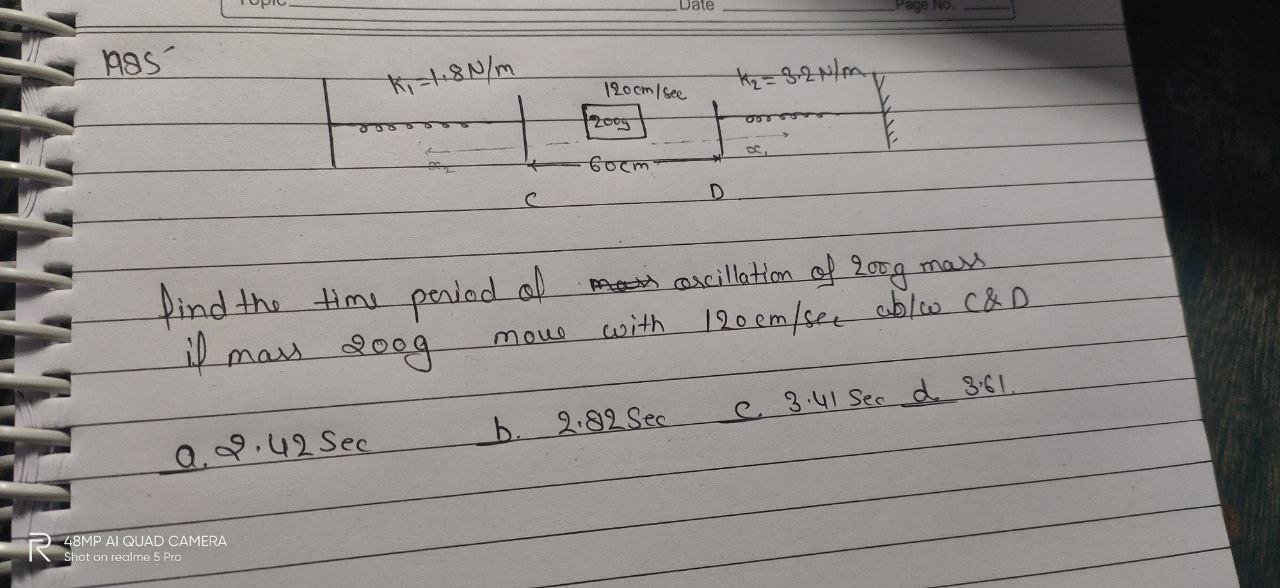 Topic Date Page No.
1985
K₁=1.8N/m 120cm/sec K₂=3.2N/m
200g
x₂ 60cm x₁
C D
find the time period of oscillation of 200g mass
if mass 200g move with 120cm/sec ab/w C & D
a. 2.42 Sec b. 2.82 Sec c. 3.41 Sec d. 3.61.
48MP AI QUAD CAMERA
Shot on realme 5 Pro